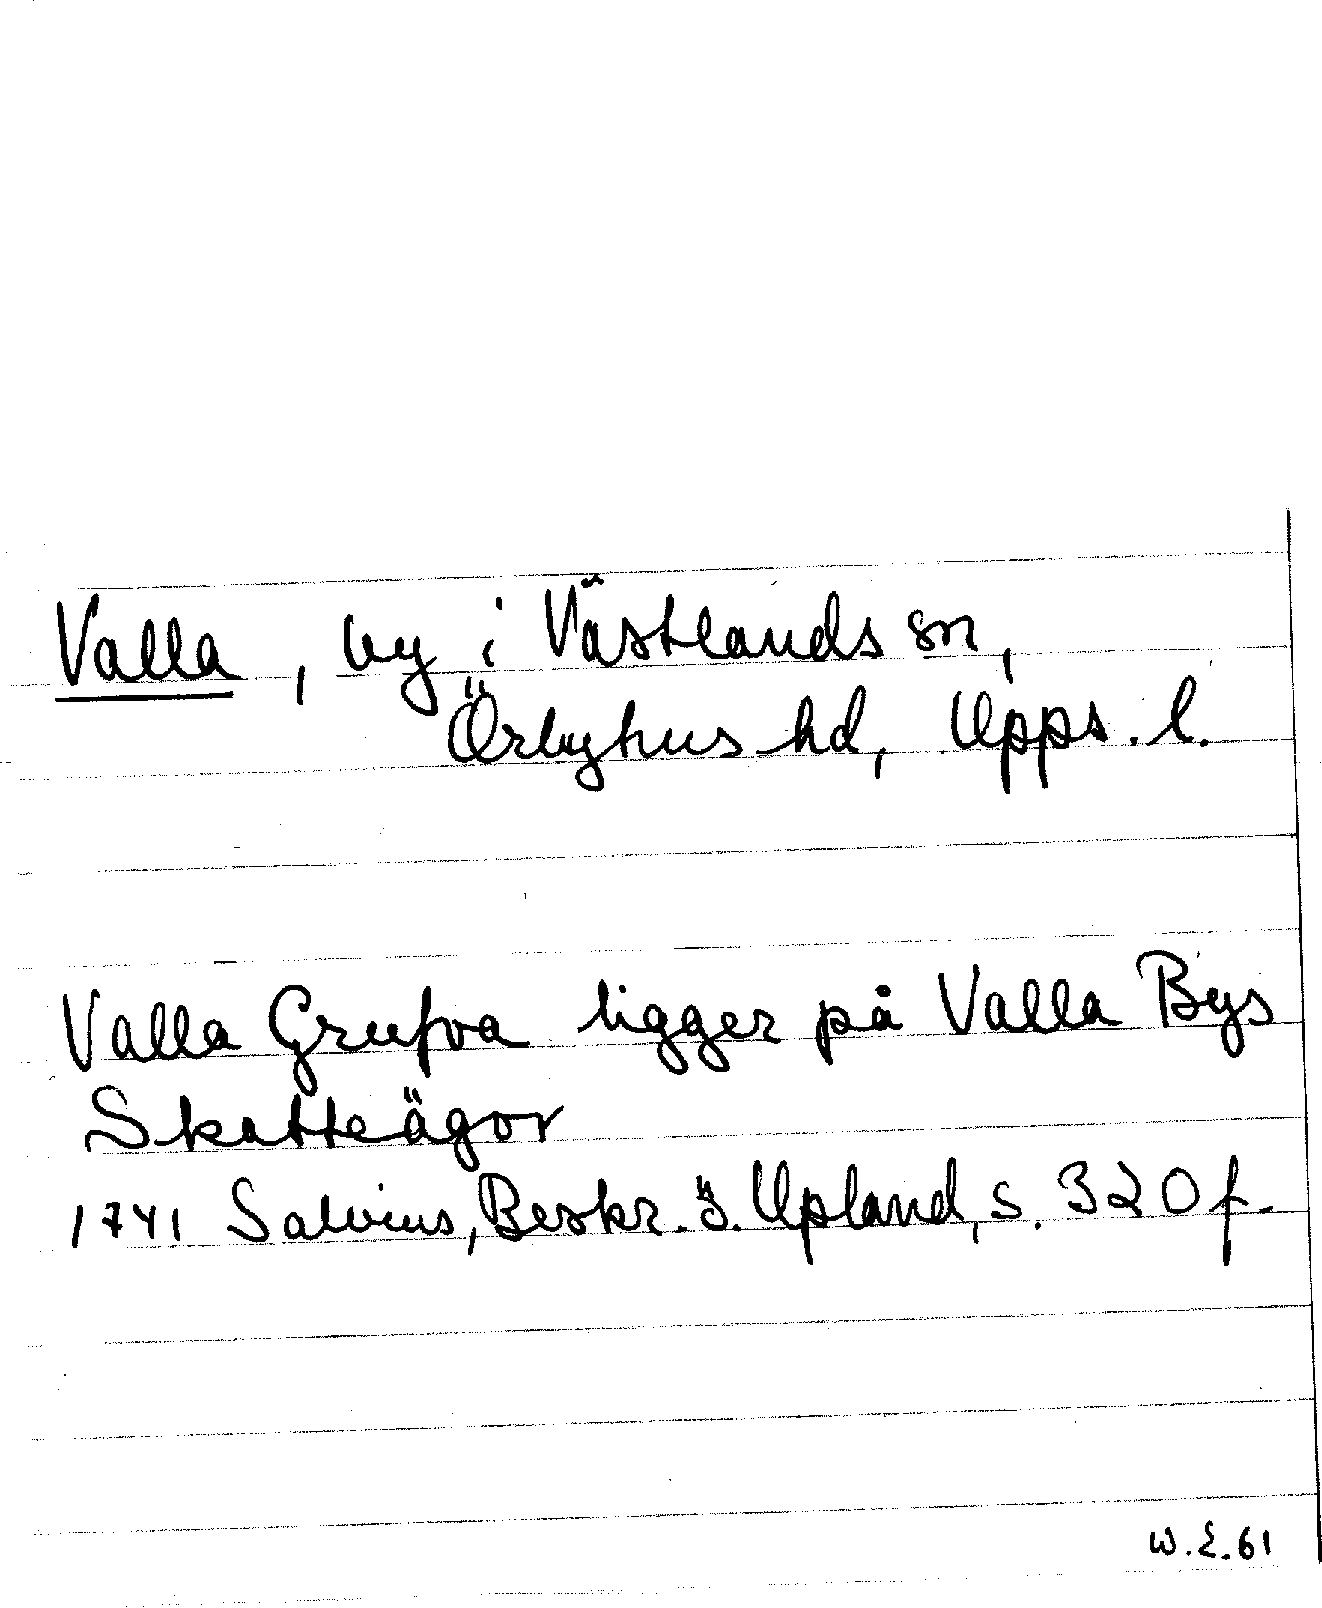 Valla, by i Västlands sn,
Örbyhus hd, Upps. l.
Valla Grufva ligger på Valla Bys
Skatteägor
1741 Salvius, Beskr. ö. Upland, s. 320 f.
W.E. 61